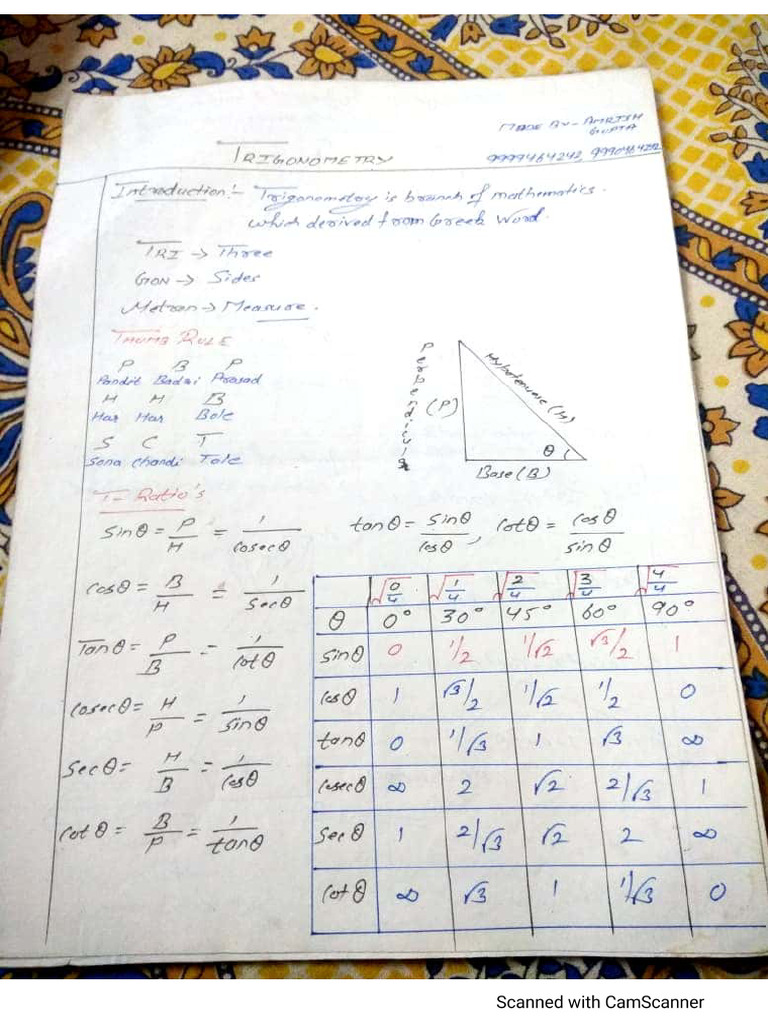 MADE BY - AMRISH
GUPTA
TRIGONOMETRY
9999464242, 9990464292
Introduction:- Trigonometry is branch of mathematics.
which derived from Greek Word.
TRI → Three
GON → Sides
Metran → Measure.
THUMB RULE
P B P
Pandit Badri Prasad
H H B
Har Har Bole
S C T
Sona Chandi Tole
Perpendicula
(P)
Hypotenuse (H)
θ
Base (B)
T-Ratio's
sinθ = P/H = 1/cosecθ
tanθ = sinθ/cosθ, cotθ = cosθ/sinθ
cosθ = B/H = 1/secθ
Tanθ = P/B = 1/cotθ
cosecθ = H/P = 1/sinθ
secθ = H/B = 1/cosθ
cotθ = B/P = 1/tanθ
√0/4 √1/4 √2/4 √3/4 √4/4
θ 0° 30° 45° 60° 90°
sinθ 0 1/2 1/√2 √3/2 1
cosθ 1 √3/2 1/√2 1/2 0
tanθ 0 1/√3 1 √3 ∞
cosecθ ∞ 2 √2 2/√3 1
secθ 1 2/√3 √2 2 ∞
cotθ ∞ √3 1 1/√3 0
Scanned with CamScanner